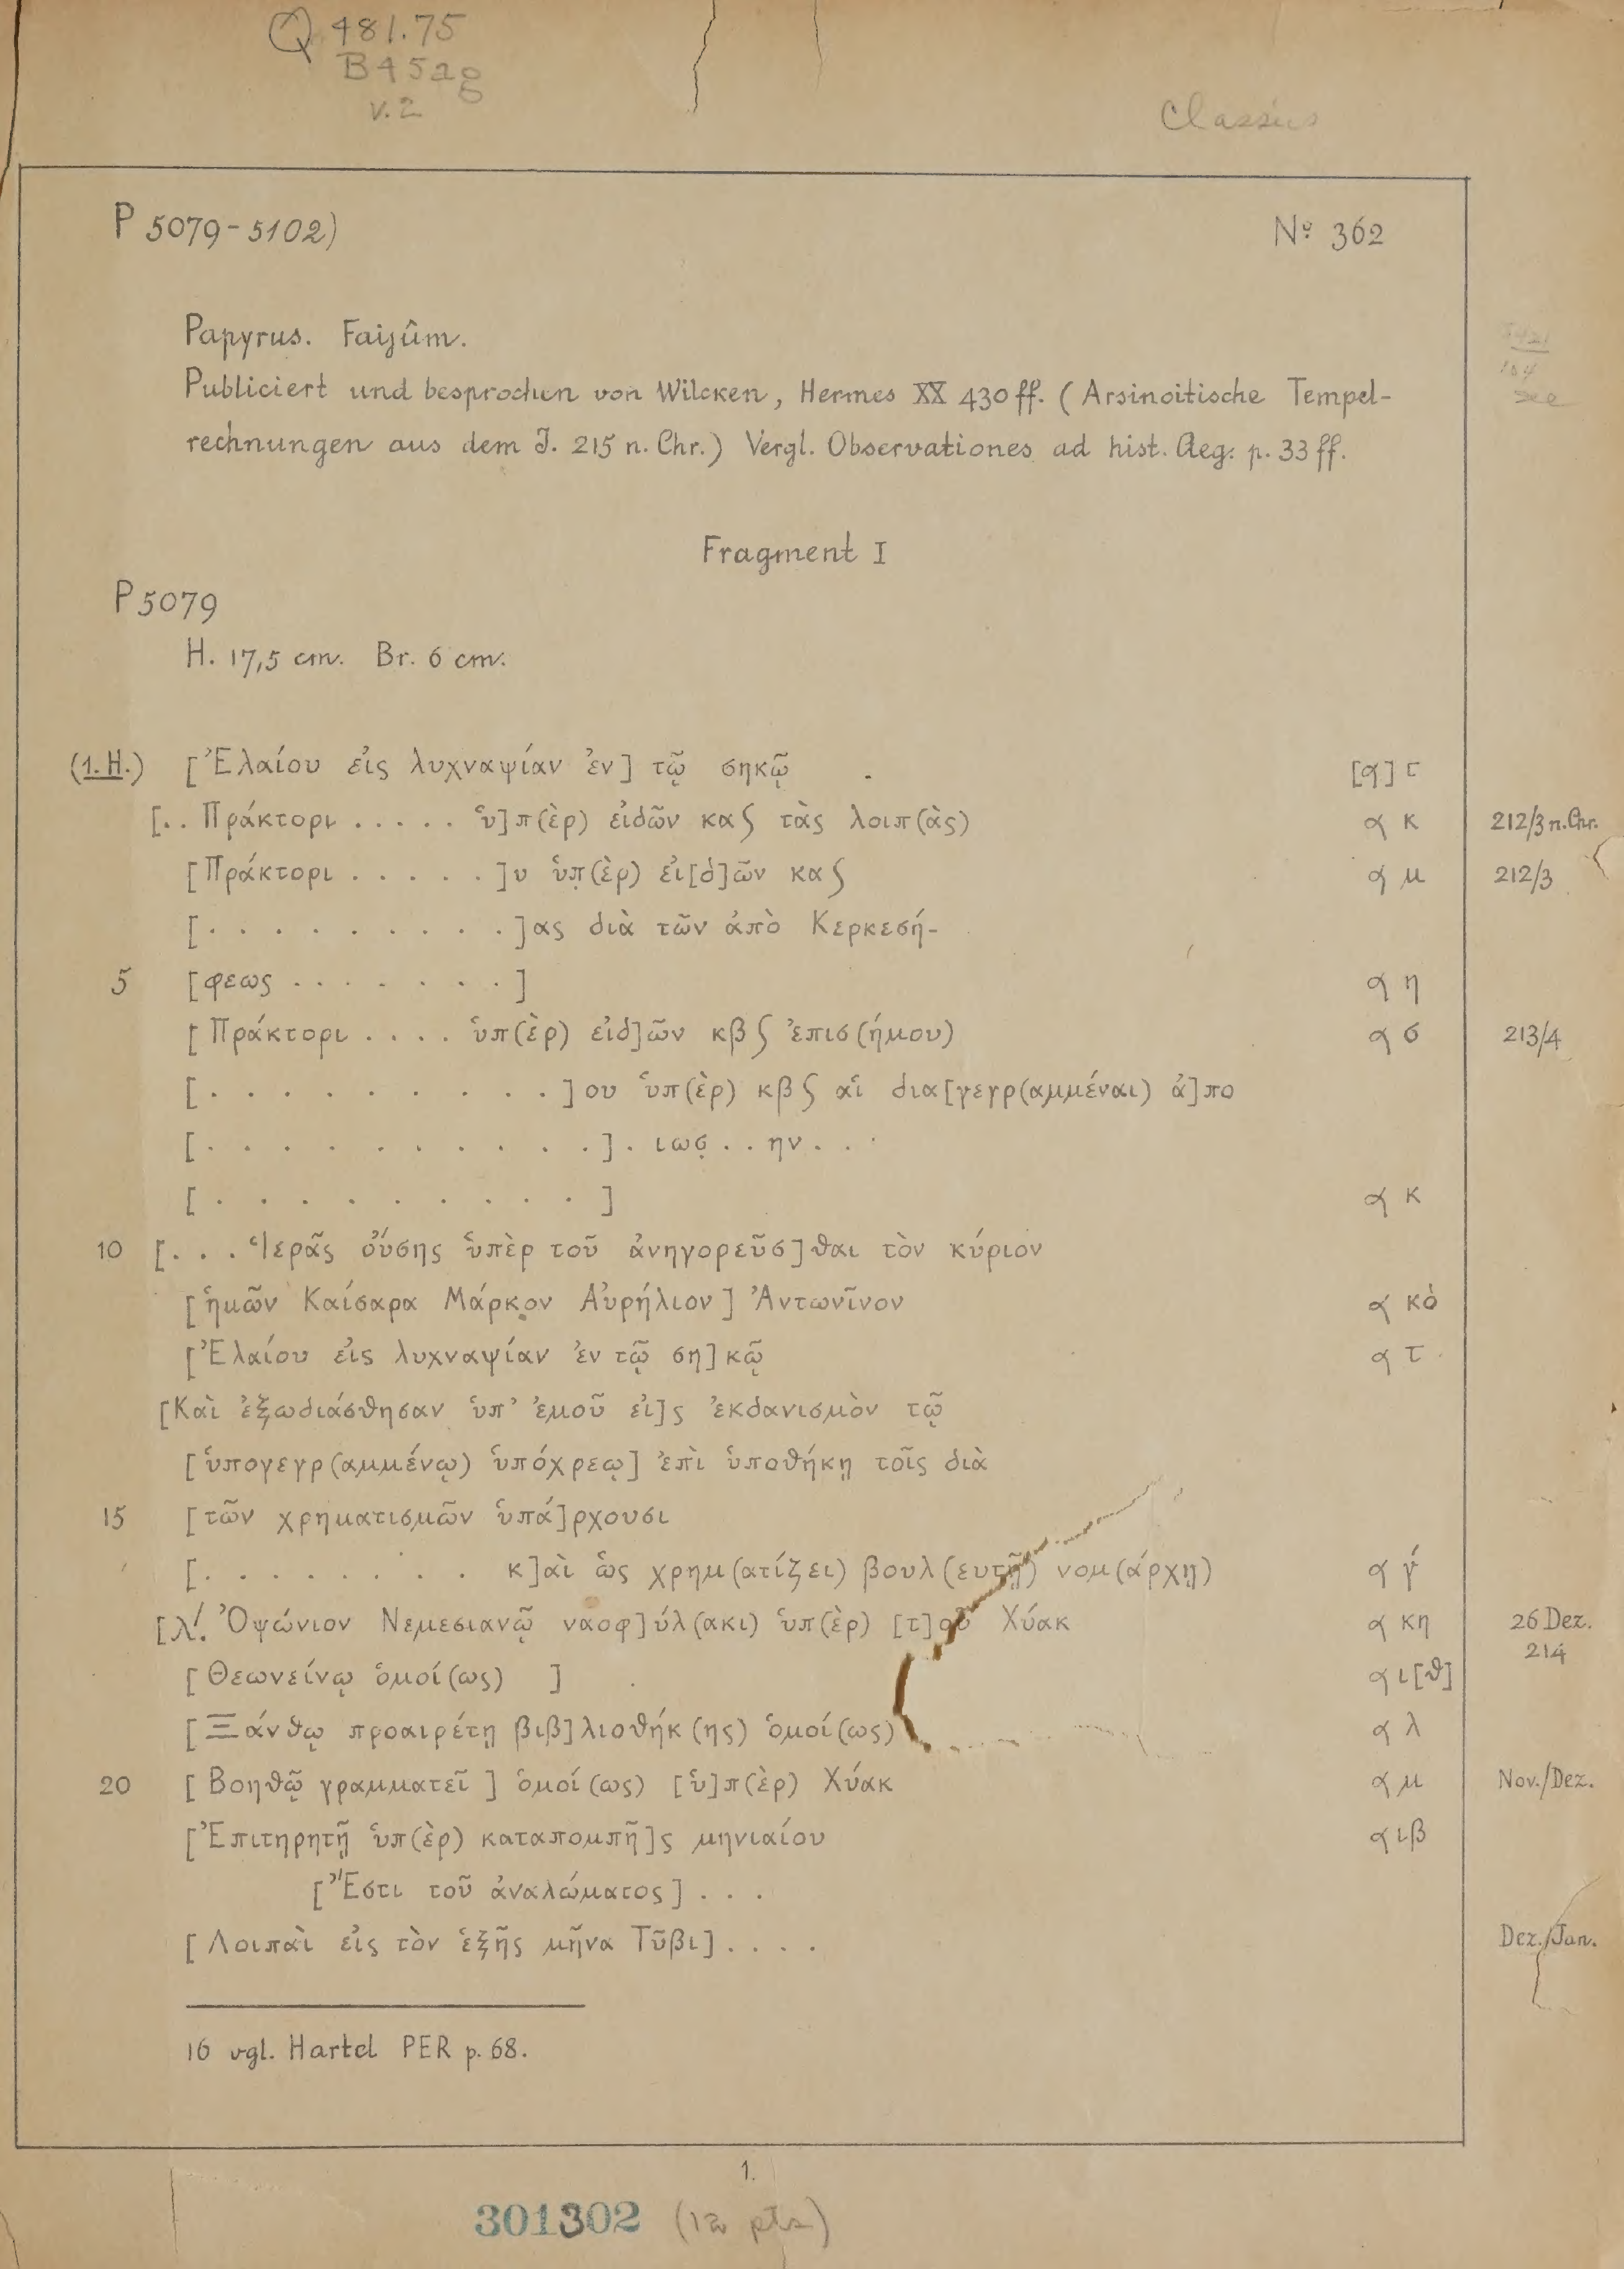 Q 481.75
B45ag
v.2
Classics
P 5079-5102)
Nº 362
Papyrus. Faijûm.
Publiciert und besprochen von Wilcken, Hermes XX 430 ff. (Arsinoitische Tempel-
rechnungen aus dem J. 215 n. Chr.) Vergl. Observationes ad hist. Aeg. p. 33 ff.
Fragment I
P 5079
H. 17,5 cm. Br. 6 cm.
(1. H.) [Ἐλαίου εἰς λυχναψίαν ἐν] τῷ σηκῷ
[.. Πράκτορι ..... ὑ]π(ὲρ) εἰδῶν κα ϛ τὰς λοιπ(ὰς) κ 212/3 n. Chr.
[Πράκτορι .....]υ ὑπ(ὲρ) εἰ[δ]ῶν κα ϛ μ 212/3
[..........]ας διὰ τῶν ἀπὸ Κερκεσή-
5 [φεως .......] η
[Πράκτορι .... ὑπ(ὲρ) εἰδ]ῶν κβ ϛ ἐπισ(ήμου) σ 213/4
[..........]ου ὑπ(ὲρ) κβ ϛ αἱ δια[γεγρ(αμμέναι) ἀ]πο
[..........]. ιωσ̣..ην...
[..........] κ
10 [... Ἱερᾶς οὔσης ὑπὲρ τοῦ ἀνηγορεῦσ]θαι τὸν κύριον
[ἡμῶν Καίσαρα Μάρκον Αὐρήλιον] Ἀντωνῖνον κδ
[Ἐλαίου εἰς λυχναψίαν ἐν τῷ ση]κῷ
[Καὶ ἐξωδιάσθησαν ὑπ' ἐμοῦ εἰ]ς ἐκδανισμὸν τῷ
[ὑπογεγρ(αμμένῳ) ὑπόχρεῳ] ἐπὶ ὑποθήκῃ τοῖς διὰ
15 [τῶν χρηματισμῶν ὑπά]ρχουσι
[........ κ]αὶ ὡς χρημ(ατίζει) βουλ(ευτῇ) νομ(άρχῃ) γ́
[λ'. Ὀψώνιον Νεμεσιανῷ ναοφ]ύλ(ακι) ὑπ(ὲρ) [τ]οῦ Χύακ κη 26 Dez. 214
[Θεωνείνῳ ὁμοί(ως) ] ι[θ]
[Ξάνθῳ προαιρέτῃ βιβ]λιοθήκ(ης) ὁμοί(ως) λ
20 [Βοηθῷ γραμματεῖ] ὁμοί(ως) [ὑ]π(ὲρ) Χύακ μ Nov./Dez.
[Ἐπιτηρητῇ ὑπ(ὲρ) καταπομπῆ]ς μηνιαίου ιβ
[Ἔστι τοῦ ἀναλώματος]...
[Λοιπαὶ εἰς τὸν ἑξῆς μῆνα Τῦβι].... Dez./Jan.
16 vgl. Hartel PER p. 68.
1.
301302 (12 pts)